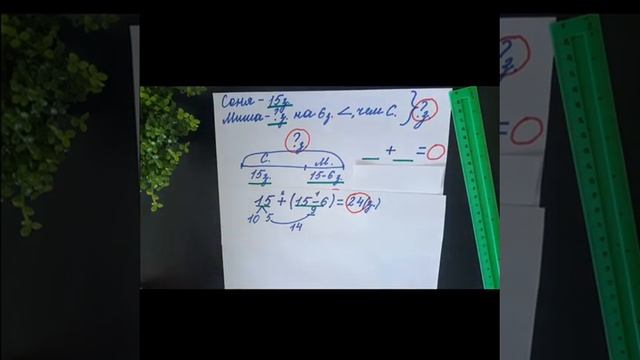 Соня - 15 з.
Миша - ? з. на 6 з. <, чем С. } ? з
? з
__ + __ = O
С. М.
15 з. 15-6 з
15 + (15-6) = 24 (з.)
10 5 9
14